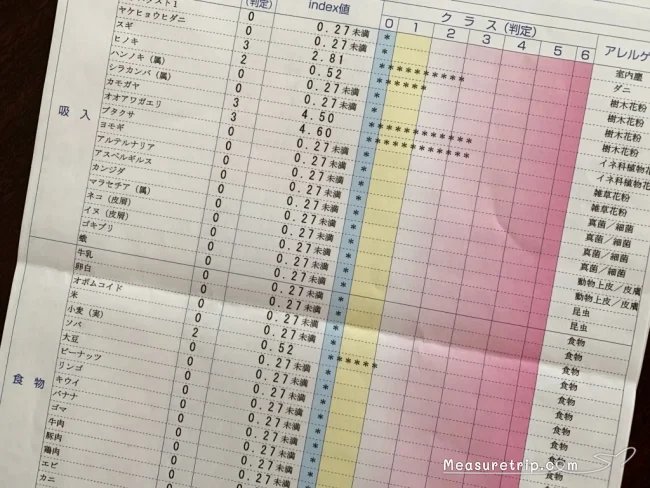 (判定) index値 クラス(判定) アレルゲ
0 1 2 3 4 5 6
吸入
スト1 0 0.27未満 * 室内塵
ヤケヒョウヒダニ 0 0.27未満 * ダニ
スギ 3 2.81 *********** 樹木花粉
ヒノキ 2 0.52 ****** 樹木花粉
ハンノキ（属） 0 0.27未満 * 樹木花粉
シラカンバ（属） 0 0.27未満 * 樹木花粉
カモガヤ 3 4.50 ************ イネ科植物花
オオアワガエリ 3 4.60 ************ イネ科植物花
ブタクサ 0 0.27未満 * 雑草花粉
ヨモギ 0 0.27未満 * 雑草花粉
アルテルナリア 0 0.27未満 * 真菌／細菌
アスペルギルス 0 0.27未満 * 真菌／細菌
カンジダ 0 0.27未満 * 真菌／細菌
マラセチア（属） 0 0.27未満 * 真菌／細菌
ネコ（皮屑） 0 0.27未満 * 動物上皮／皮膚
イヌ（皮屑） 0 0.27未満 * 動物上皮／皮膚
ゴキブリ 0 0.27未満 * 昆虫
蛾 0 0.27未満 * 昆虫
食物
牛乳 0 0.27未満 * 食物
卵白 0 0.27未満 * 食物
オボムコイド 0 0.27未満 * 食物
米 0 0.27未満 * 食物
小麦（実） 2 0.52 ****** 食物
ソバ 0 0.27未満 * 食物
大豆 0 0.27未満 * 食物
ピーナッツ 0 0.27未満 * 食物
リンゴ 0 0.27未満 * 食物
キウイ 0 0.27未満 *
バナナ 0 0.27未満 *
ゴマ 0 0.27未満 *
牛肉 0
豚肉 0
鶏肉
エビ
カニ
Measuretrip.com